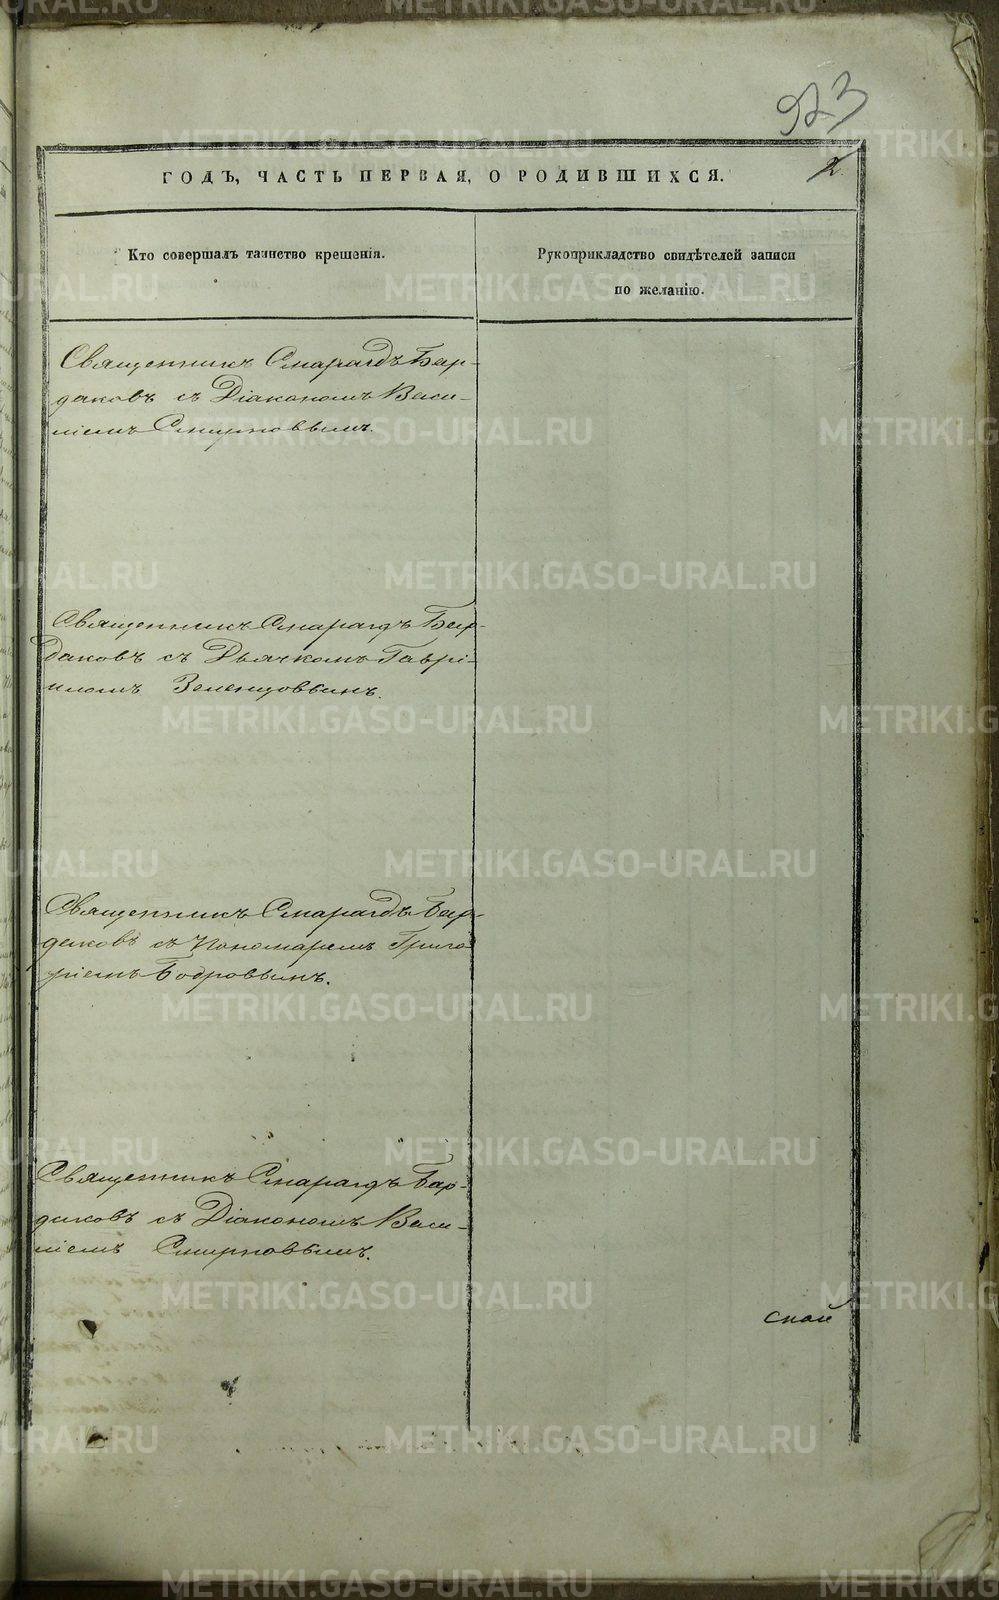 923
2.
ГОДЪ, ЧАСТЬ ПЕРВАЯ, О РОДИВШИХСЯ.
Кто совершалъ таинство крещенія.
Рукоприкладство свидѣтелей записи
по желанію.
Священникъ Смарагдъ Бар-
даковъ съ Діакономъ Васи-
ліемъ Смирновымъ.
Священникъ Смарагдъ Бар-
даковъ съ Дьячкомъ Гаврі-
иломъ Зеленцовымъ.
Священникъ Смарагдъ Бар-
даковъ съ Пономаремъ Григо
ріемъ Бодровымъ.
Священникъ Смарагдъ Бар-
даковъ съ Діакономъ Васи-
ліемъ Смирновымъ.
ской
METRIKI.GASO-URAL.RU